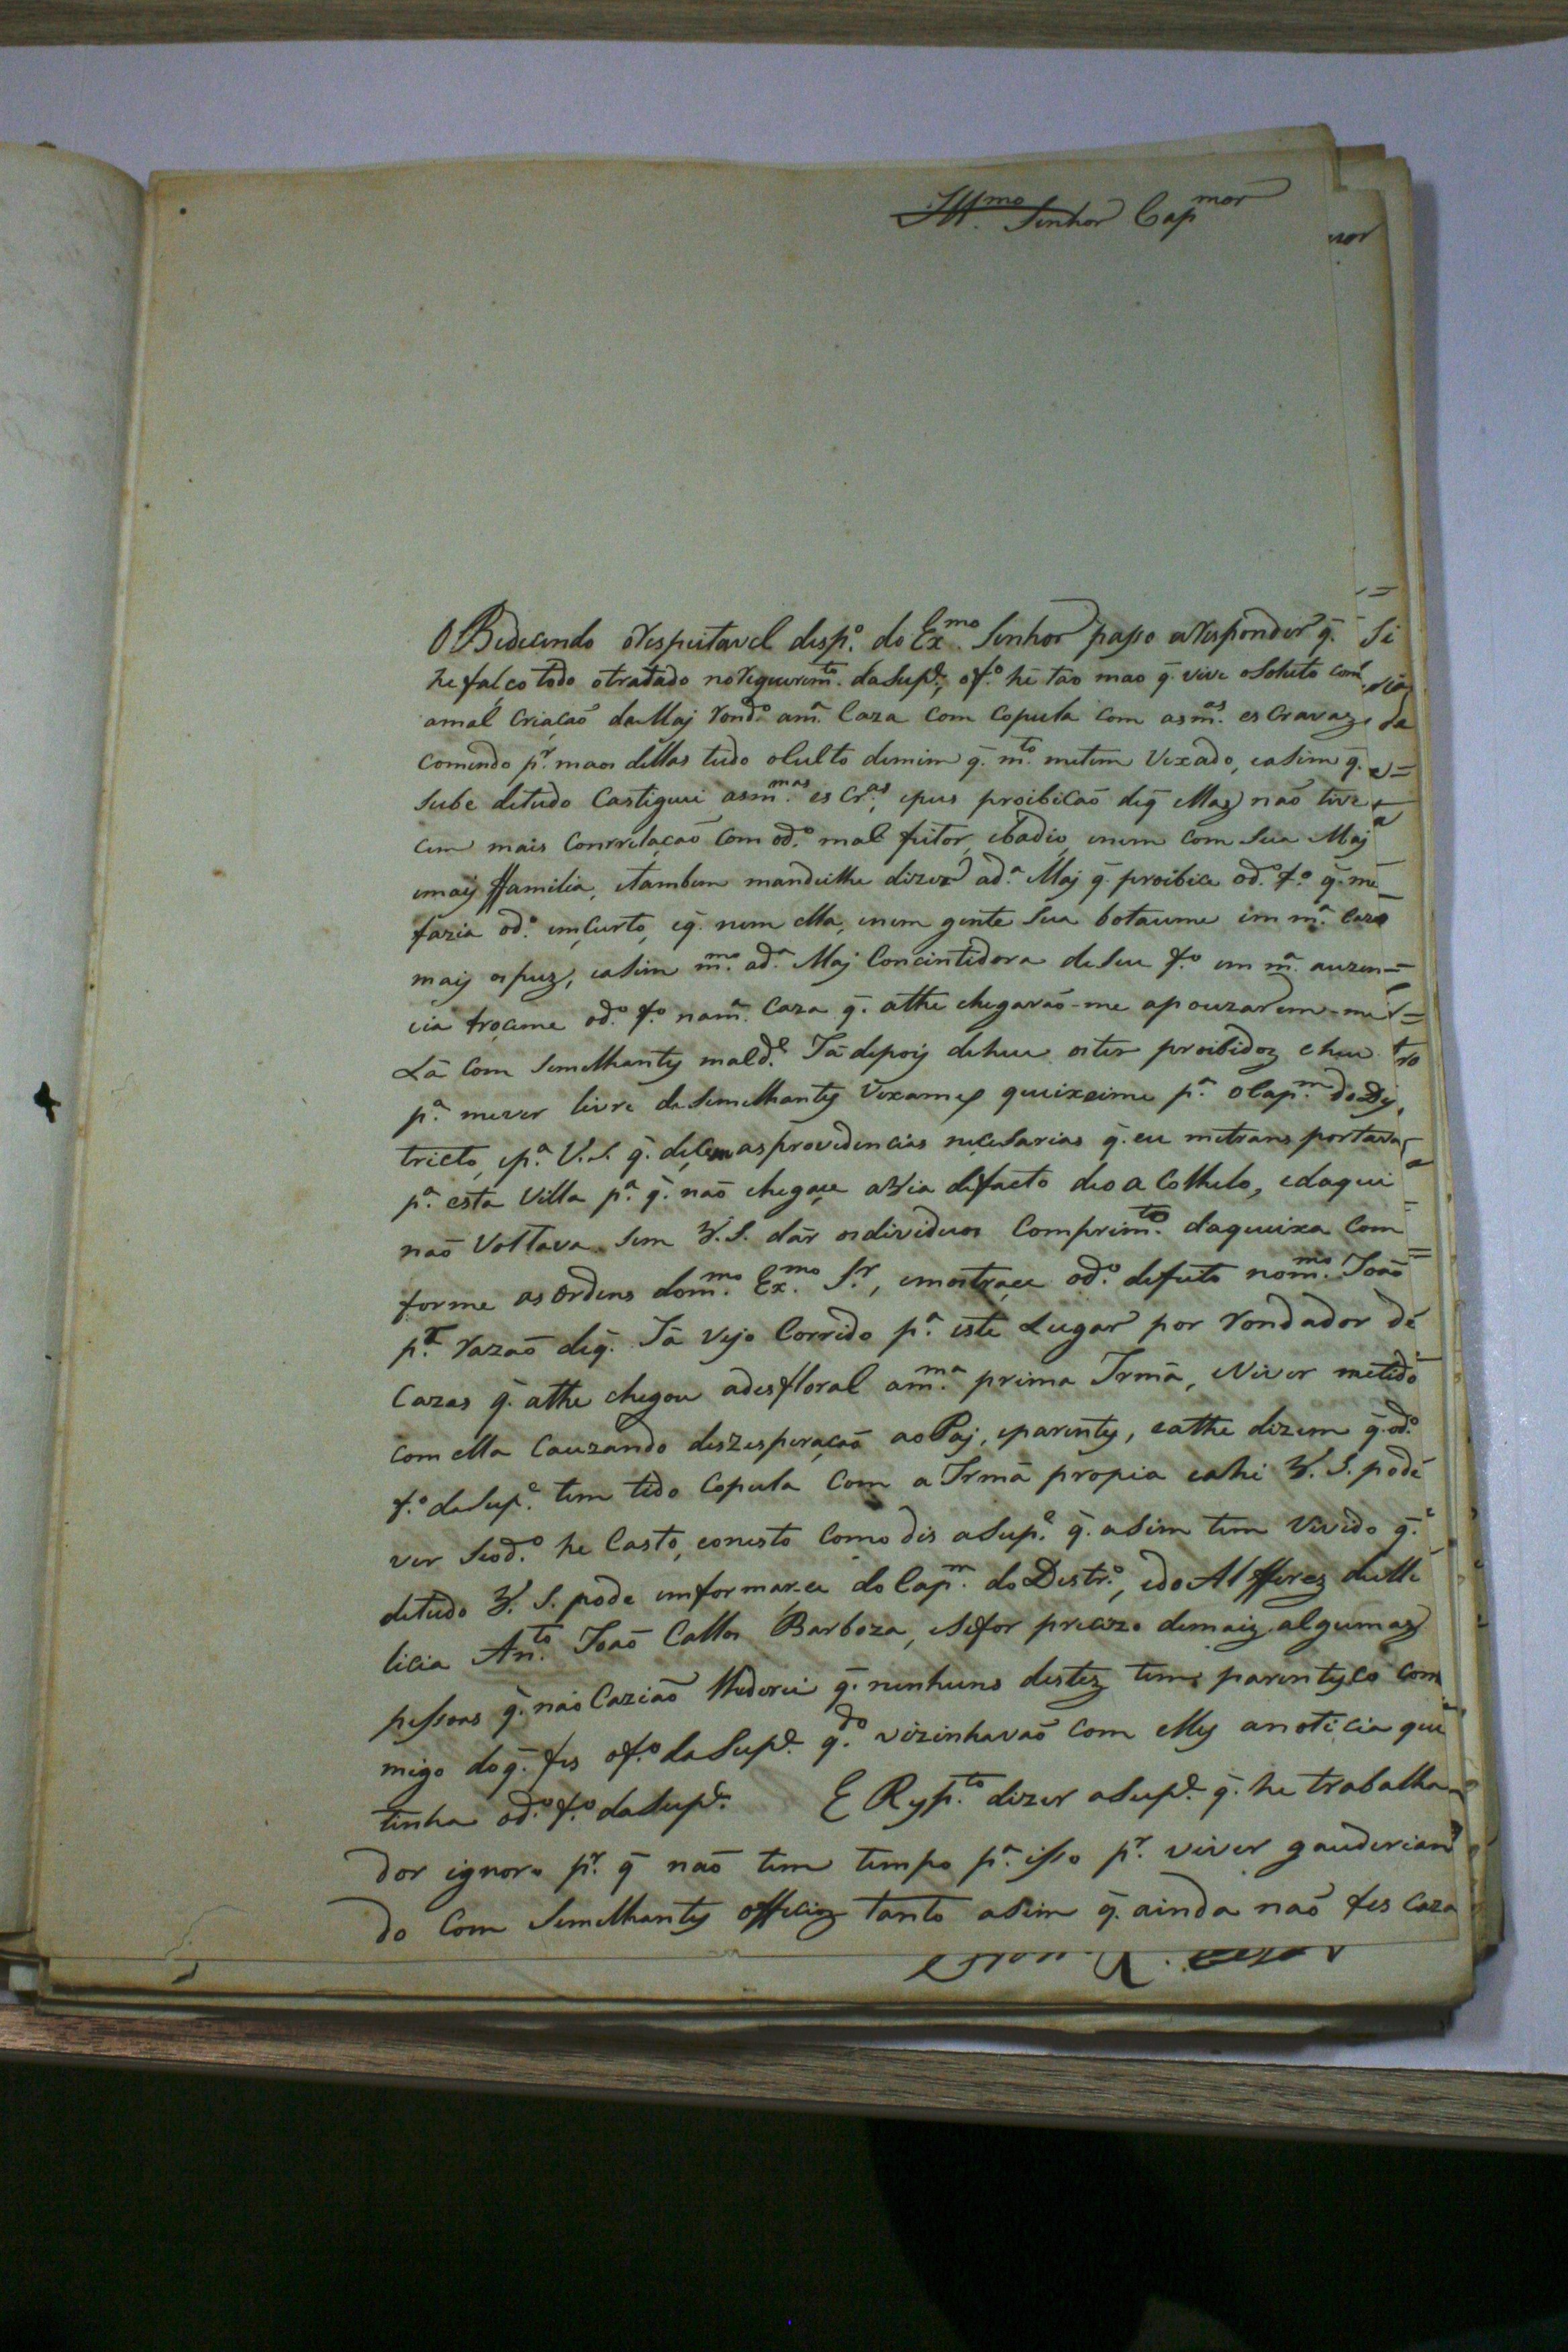 Ill.mo Senhor Cap mor
OBedecendo orespeitavel desp.o do Ex.mo Senhor passo aresponder q̃.
he falço todo otratado norequerim.to daSup.e, of.o he tão mao q̃. vive osoluto com
amal Criação daMaj rond.o am.a Caza com Copula com as m.as esCravaz
Comendo p.r maos dellas tudo oCulto demim q̃. m.to metem Vexado, easim q̃.
Sube detudo Castiguei asm.mas esCr.as, epus proibiCão deq̃ ellaz não tive
cem mais Conrrelação Com od.o mal feitor, ebadio, enem com Sua Maj
emaij ffamilia, etambem mandeilhe dizer ad.a Maj q̃. proibice od.o f.o q̃. me
fazia od.o emçurto, eq̃. nem ella, enem gente Sua botaceme em m.a Caza
maij os puz, easim m.mo ad.a Maj Concintidora deSeu f.o em m.a auzen=
cia troceme od.o f.o nam.a Caza q̃. athe chegarão-me apouzarem-me
Lá Com Semelhantej mald.e Já depoij deheu oster proibidoz eheu
p.a mever livre deSemelhantej Vexamez queixeime p.a oCap.m doDij
tricto, ep.a V.S. q̃. deCem asprovidencias neceSarias q̃. eu metransportava
p.a esta Villa p.a q̃. não chegaçe aVia defacto deo a Colhelo, edaqui
não Voltava Sem V.S. dár osdividuos Comprim.to daqueixa Com
forme as ordens dom.mo Ex.mo S.r, emostraçe od.o defeito nom.mo João
p.r razaõ deq̃. Já vejo Corrido p.a este Lugar por rondador de
Cazas q̃. athe chegou adesfloral am.ma prima Irmã, eViver metido
com ella Cauzando deszesperação aoPaj, eparentej, eathe dizem q̃.od.o
f.o daSup.e tem tido Copula Com a Irmã propia eahi V.S. pode
ver Seod.o he Casto, eonesto Como dis aSup.e q̃. aSim tem Vivido q̃.
detudo V.S. pode emformar-ce do Cap.m do Destr.o, edo Alfferez deMe
licia An.to João Callos Barboza, eSefor precizo demaiz algumaz
pessoas q̃. não Cazião q̃. nenhuns destez tem parentesco Com
migo doq̃. fes of.o daSup.e q.do vizinhavaõ Com ellej anoticia que
tinha od.o f.o daSup.e E Resp.to dizer aSup.e q̃. he trabalha
dor ignoro p.r q̃ não tem tempo p.a isso p.r viver gauderian
do Com Semelhantej officioz tanto aSim q̃. ainda não fes Caza